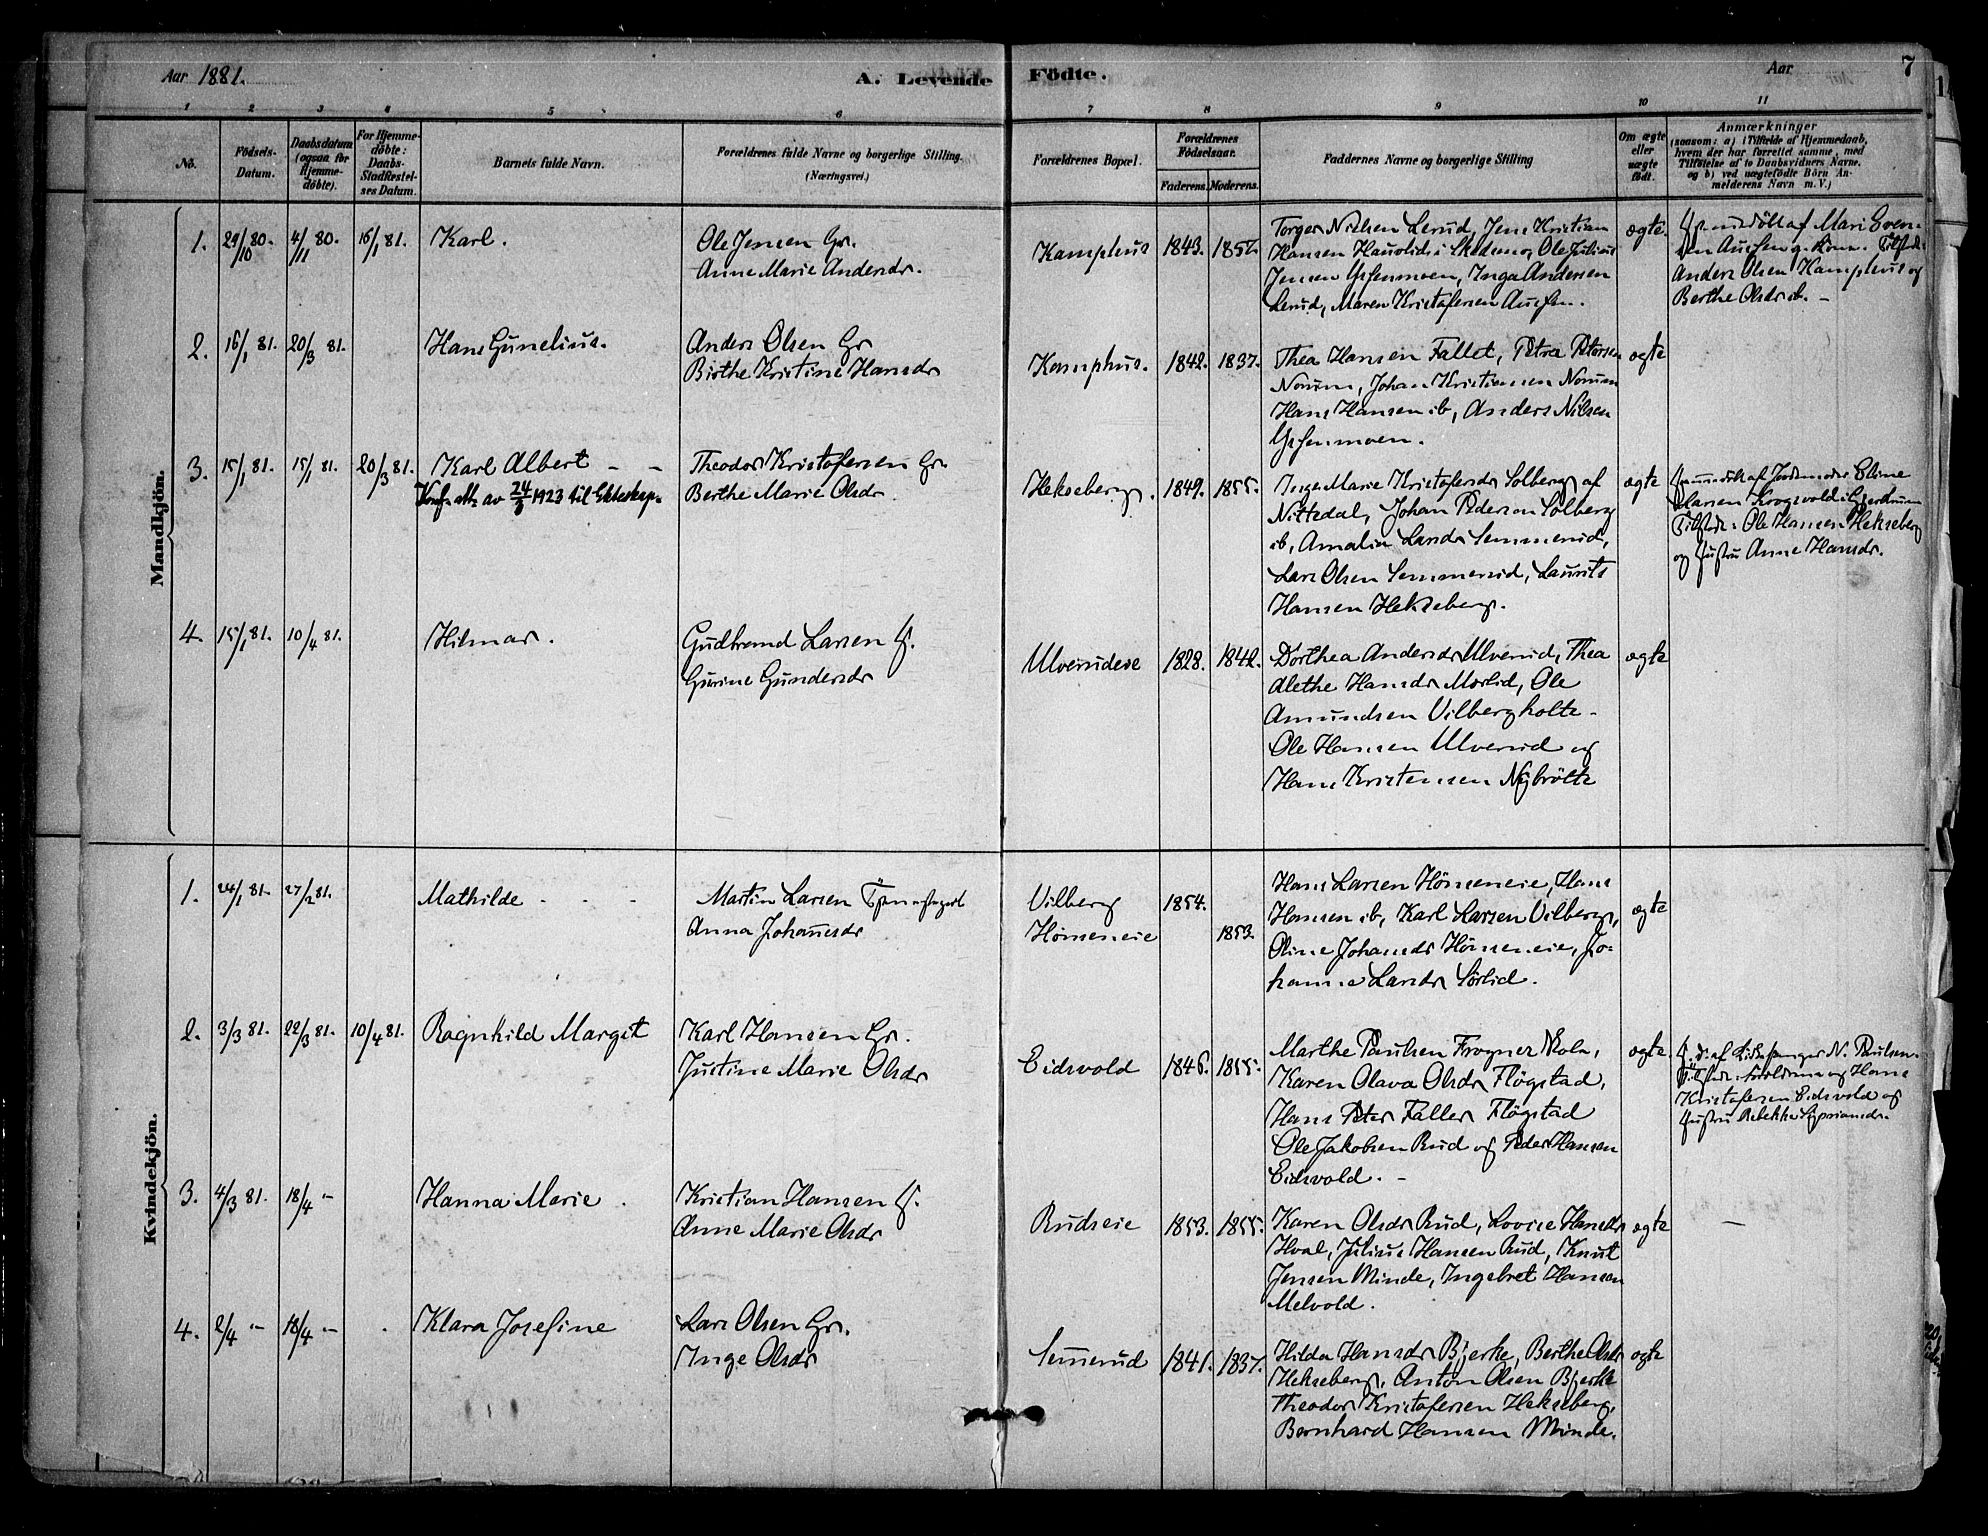 Aar 1881.
A. Levende Födte.
Aar
7
1 2 3 4 5 6 7 8 9 10 11
No.
Födsels-Datum.
Daabsdatum (ogsaa for Hjemme-döbte).
For Hjemme-döbte: Daabs-Stadfæstel-ses Datum.
Barnets fulde Navn.
Forældrenes fulde Navne og borgerlige Stilling.
(Næringsvei.)
Forældrenes Bopæl.
Forældrenes Födselsaar.
Faderens. Moderens.
Faddernes Navne og borgerlige Stilling
Om ægte eller uægte födt.
Anmærkninger
(saasom: a) i Tilfælde af Hjemmedaab,
hvem der har forrettet samme, med
Tilföielse af to Daabsvidners Navne.
og b) ved uægtefödte Börn An-
melderens Navn m. V.)
Mandkjön.
1. 29/10 80. 4/11 80. 16/1 81. Karl.
Ole Jensen Gr.
Anne Marie Andersdr.
Kamphus 1843. 1857.
Torger Nielsen Lerud, Jens Kristian
Hansen i Skedsmo, Ole Julius
Jensen, Inga Andersen
Lerud, Maren Kristofersen
ægte.
af Mari Even-
Anders Olsen Kamphus og
Berthe Olsdr ib. –
2. 16/1 81. 20/3 81. Hans Gunelius.
Anders Olsen Gr
Birthe Kristine Hansdr
Kamphus. 1842. 1837.
Thea Hansen Fallet, Petra Petersen
Norum, Johan Kristiansen Norum
Hans Hansen ib, Anders Nilsen
ægte
3. 15/1 81. 15/1 81. 20/3 81. Karl Albert – –
av 24/3 1923 til Ekteskap.
Theodor Kristofersen Gr.
Berthe Marie Olsdr.
Hekseberg. 1849. 1855.
Inge Marie Kristofersdr Solberg af
Nittedal, Johan Pederson Solberg
ib, Amalia Larsdr Semmerud,
Lars Olsen Semmerud, Laurits
Hansen Hekseberg.
ægte
af Jordemoder Eline
Larsen Krogsvold i Gjerdrum
Ole Hansen Hekseberg
og Hustru Anne Hansdr.
4. 15/1 81. 10/4 81. Hilmar.
Gudbrand Larsen H.
Gurine Gundersdr
Ulverudeie 1828. 1842.
Dorthea Andersdr Ulverud, Thea
Alethe Hansdr Morlid, Ole
Amundsen Vilbergholte.
Ole Hansen Ulverud og
Hans Kristensen Nybrölte
ægte
Kvindekjön.
1. 24/1 81. 27/2 81. Mathilde
Martin Larsen
Anna Johannesdr
Vilberg 1854.
Hömeneie 1853.
Hans Larsen Hömeneie, Hans
Hansen ib, Karl Larsen Vilberg,
Oline Johansdr Hömeneie, Jo-
hanne Larsdr Sörlid.
ægte
2. 3/3 81. 22/3 81. 10/4 81. Ragnhild Margit
Karl Hansen Gr.
Justine Marie Olsdr
Eidsvold 1846. 1855.
Marthe Paulsen Frogner Skole,
Karen Olava Olsdr Flögstad,
Hans Peter Faller Flögstad
Ole Jakobsen Rud og Peder Hansen
Eidsvold. –
ægte.
H. d. af Kirkesanger N. Paulsen.
Forældrene og Hans
Kristofersen Eidsvold og
Hustru Rebekka Cypriansdr.
3. 4/3 81. 18/4 – Hanna Marie.
Kristian Hansen H.
Anne Marie Olsdr
Rudseie 1853. 1855.
Karen Olsdr Rud, Lovise Hansdr
Hval, Julius Hansen Rud, Knut
Jensen Minde, Ingebret Hansen
Melvold.
ægte
–
4. 2/4 – 18/4 – Klara Josefine
Lars Olsen Gr.
Inge Olsdr
Semerud 1841. 1837.
Hilda Hansdr Bjerke, Berthe Olsdr
Hekseberg, Anton Olsen Bjerke
Theodor Kristofersen Hekseberg,
Bernhard Hansen Minde.
ægte